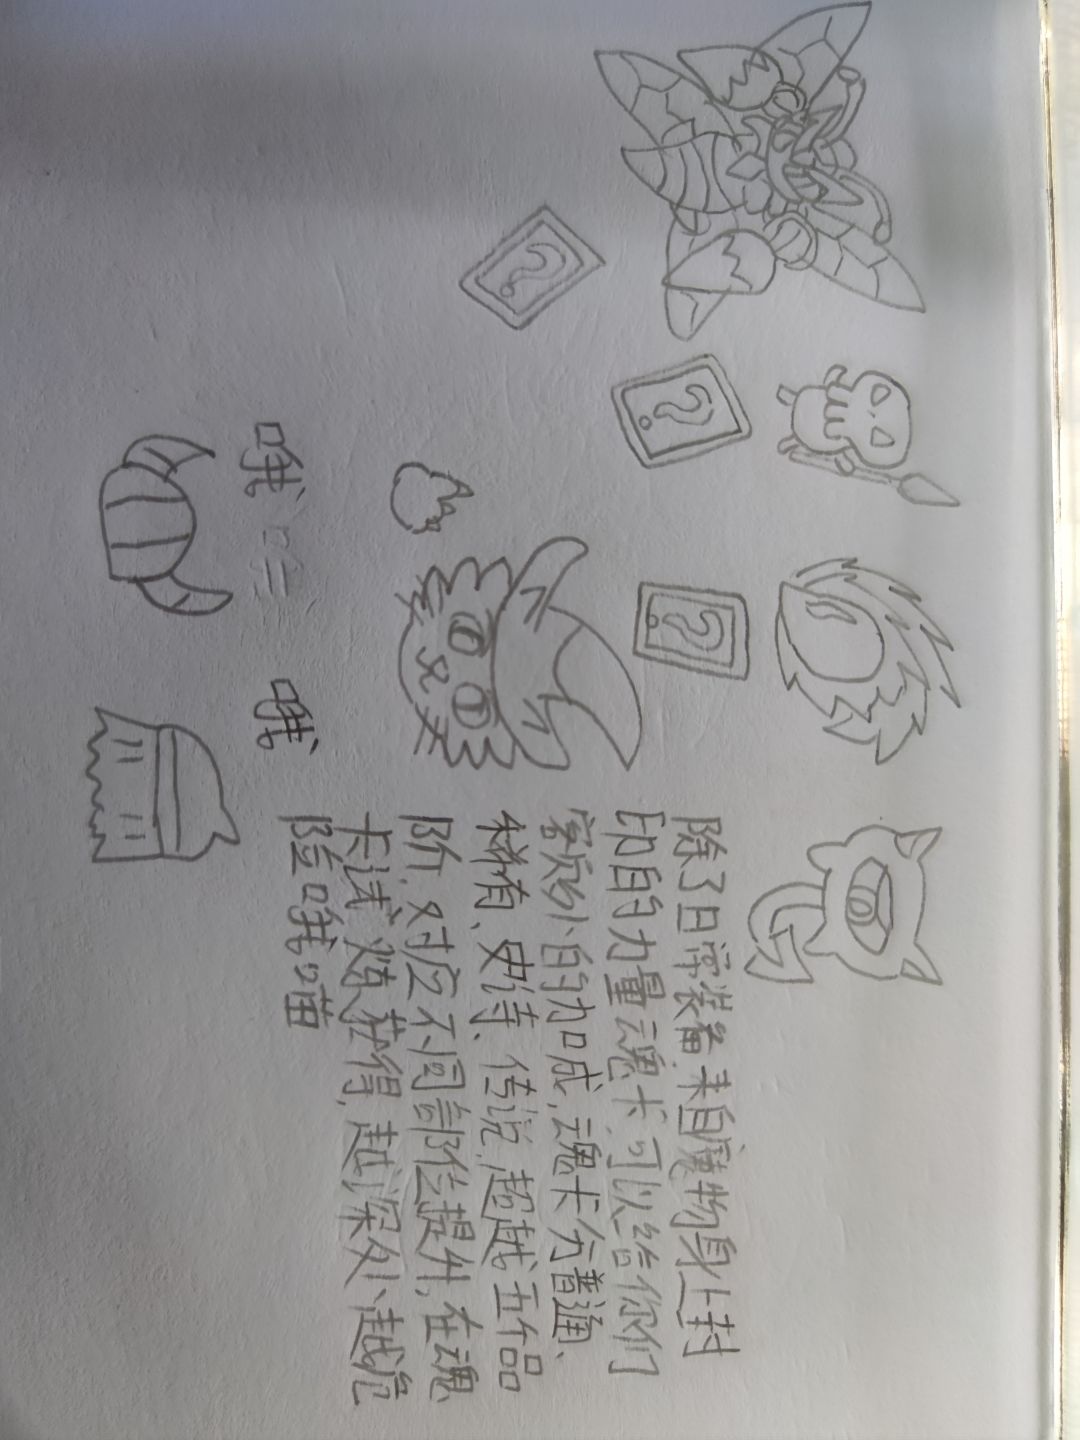 除了日常装备,来自魔物身上封
印的力量魂卡,可以给你们
额外的加成,魂卡分普通、
稀有、史诗、传说,超越五个品
阶,对应不同部位提升,在魂
卡试炼获得,越深处越危
险哦喵
哦
哦
?
?
?